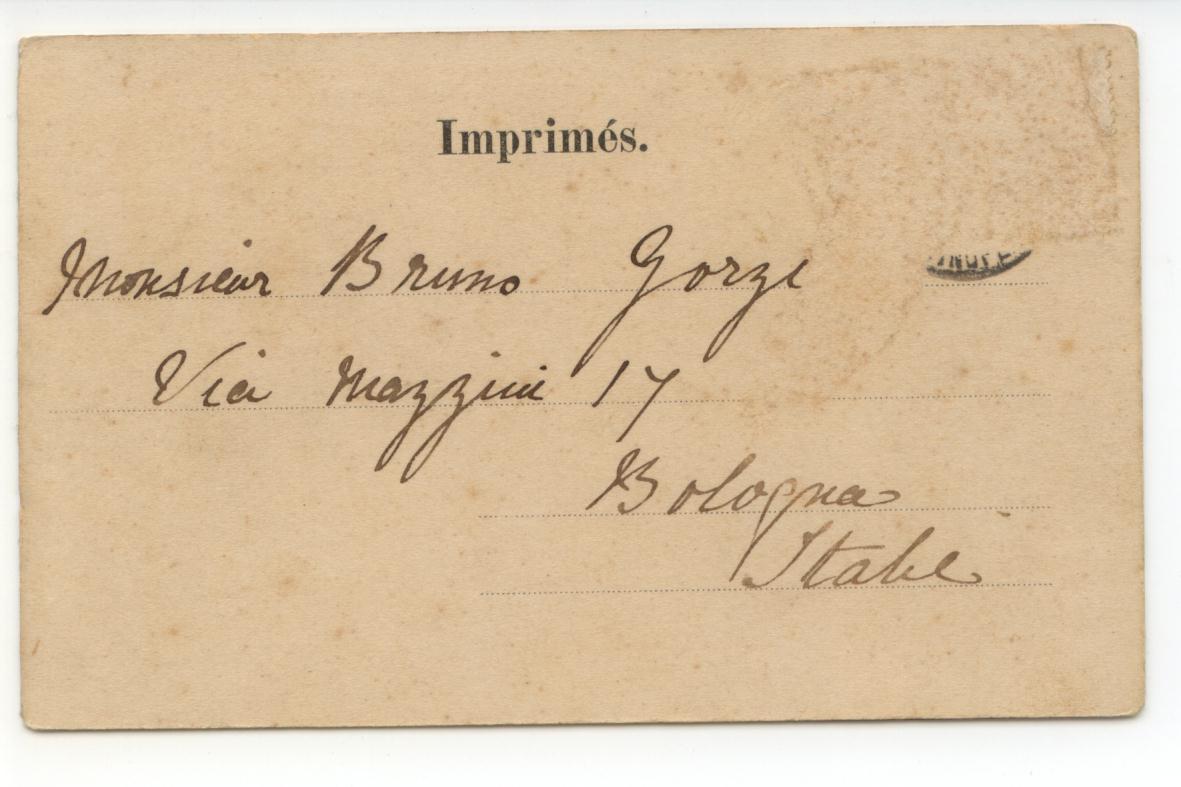 Imprimés.
Monsieur Bruno Gorze
Via Mazzini 17
Bologna
Italie